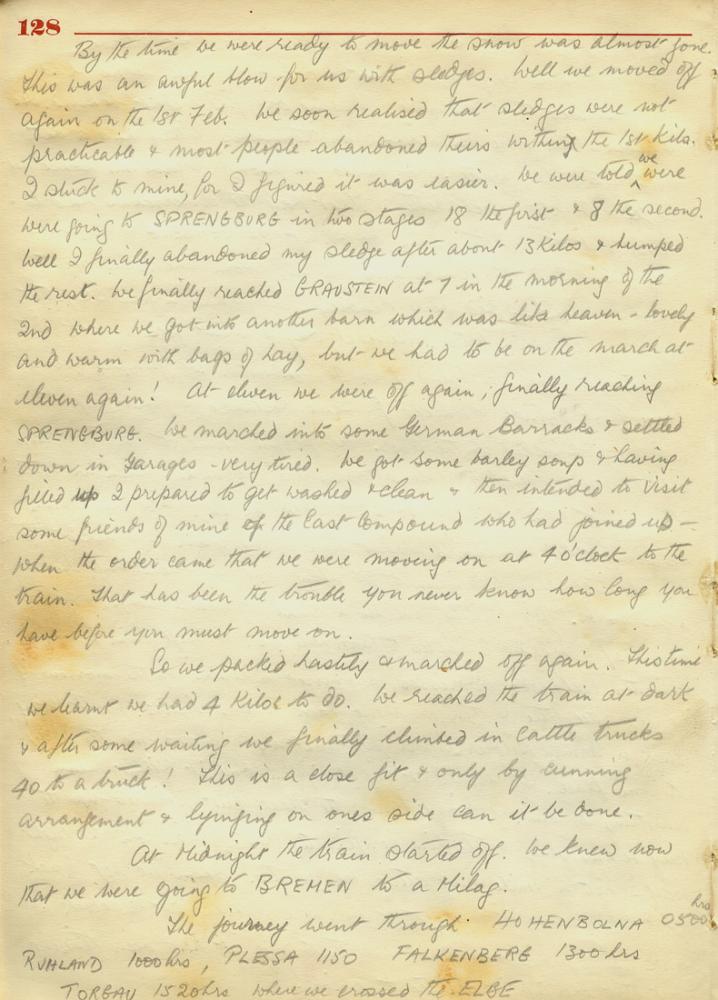 128
By the time we were ready to move the snow was almost gone.
This was an awful blow for us with sledges. Well we moved off
again on the 1st Feb. We soon realised that sledges were not
practicable & most people abandoned theirs withing the 1st Kilo.
I stuck to mine, for I figured it was easier. We were told we were
were going to SPRENGBURG in two stages 18 the first & 8 the second.
Well I finally abandoned my sledge after about 13 Kilos & humped
the rest. We finally reached GRAUSTEIN at 7 in the morning of the
2nd where we got into another barn which was like heaven - lovely
and warm with bags of hay, but we had to be on the march at
eleven again! At eleven we were off again, finally reaching
SPRENGBURG. We marched into some German Barracks & settled
down in Garages - very tired. We got some barley soup & having
filled up I prepared to get washed & clean & then intended to visit
some friends of mine of the East Compound who had joined us -
when the order came that we were moving on at 4 o'clock to the
train. That has been the trouble you never know how long you
have before you must move on.
So we packed hastily & marched off again. This time
we learnt we had 4 Kilos to do. We reached the train at dark
& after some waiting we finally climbed in Cattle trucks
40 to a truck! This is a close fit & only by cunning
arrangement & lyinging on ones side can it be done.
At Midnight the train started off. We knew now
that we were going to BREMEN to a Milag.
The journey went through HOHENBOLNA 0500 hrs
RUHLAND 1000 hrs, PLESSA 1150 FALKENBERG 1300 hrs
TORGAU 1520 hrs where we crossed the ELBE